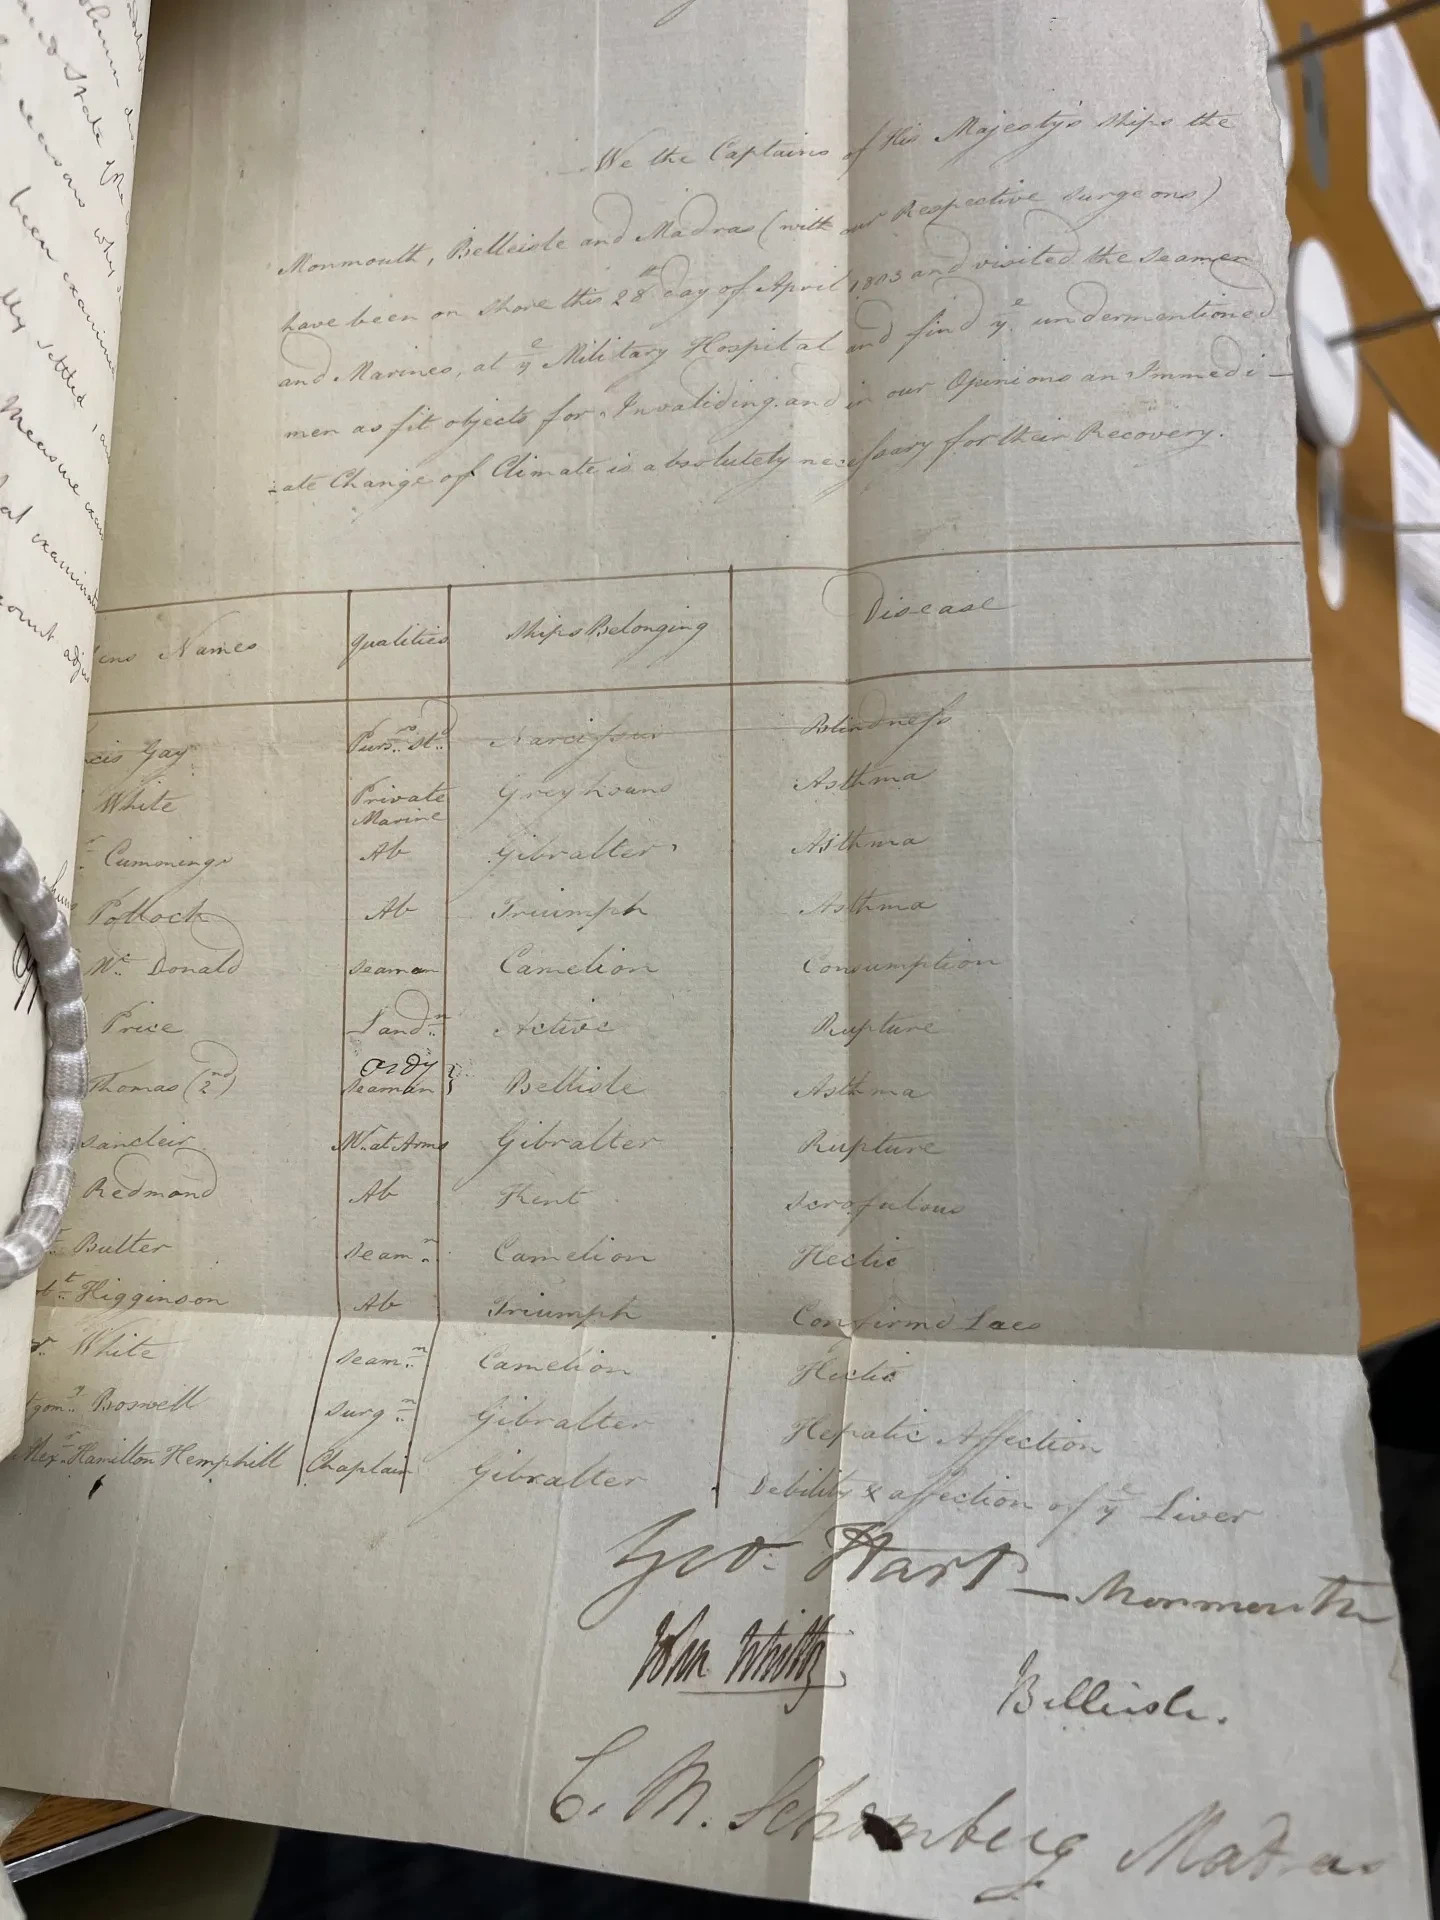 We the Captains of His Majesty's Ships the
Monmouth, Belleisle and Madras (with our Respective Surgeons)
have been on Shore this 28th day of April 1803 and visited the Seamen
and Marines, at ye Military Hospital and find ye undermentioned
men as fit objects for Invaliding and in our Opinions an Immedi-
-ate Change of Climate is absolutely necessary for their Recovery.
Names Qualities Ships Belonging Disease
Gay Purs.rs St.d Narcissus Blindness
White Private Marine Greyhound Asthma
Cummings Ab Gibralter Asthma
Pollock Ab Triumph Asthma
Mc Donald Seaman Camelion Consumption
Price Land.n Active Rupture
Thomas (2nd) Ordy Seaman } Bellisle Asthma
Sancleir Mr. at Arms Gibralter Rupture
Redmond Ab Kent Scrofulous
Butler Seam.n Camelion Hectic
Higginson Ab Triumph Confirmd Lues
White Seam.n Camelion Hectic
Boswell Surg.n Gibralter Hepatic Affection
Alexr. Hamilton Hemphill Chaplain Gibralter Debility & affection of ye Liver
Geo. Hart - Monmouth
John Whitby Belleisle.
C. M. Schomberg Madras